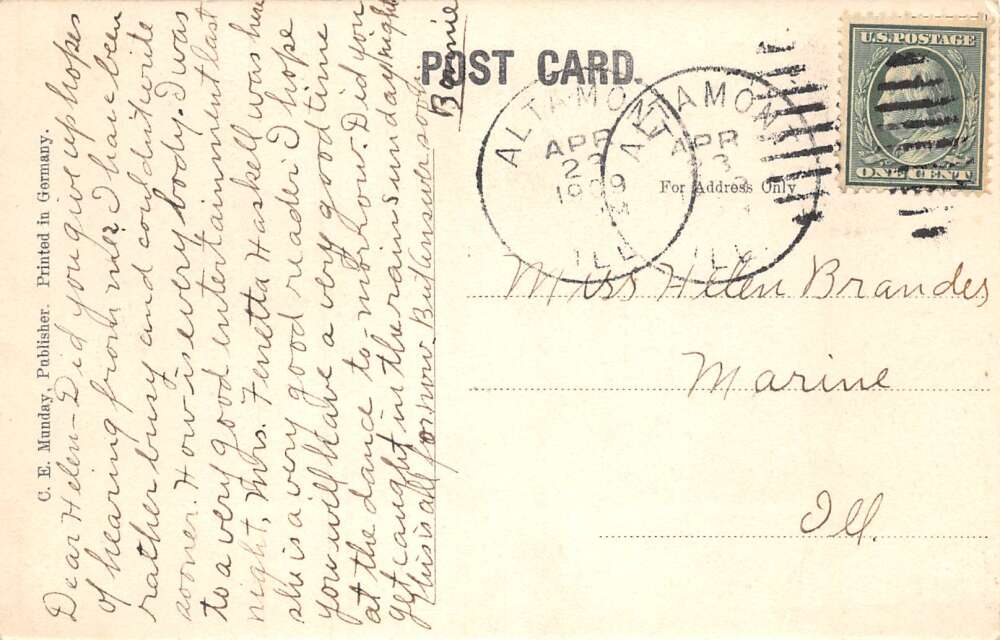 POST CARD.
For Address Only
C. E. Munday, Publisher. Printed in Germany.
U.S. POSTAGE
ONE CENT
ALTAMONT
APR
23
1909
ILL.
ALTAMONT
APR
ILL.
Miss Helen Brandes
Marine
Ill.
Dear Helen - Did you give up hopes
of hearing from me? I have been
rather busy and couldn't write
sooner. How is every body. I was
to a very good entertainment last
night, Mrs. Fenetta Haskell was here
she is a very good reader. I hope
you will have a very good time
at the dance to-morrow. Did you
get caught in the rain Sunday night
This is all for now. But answer soon